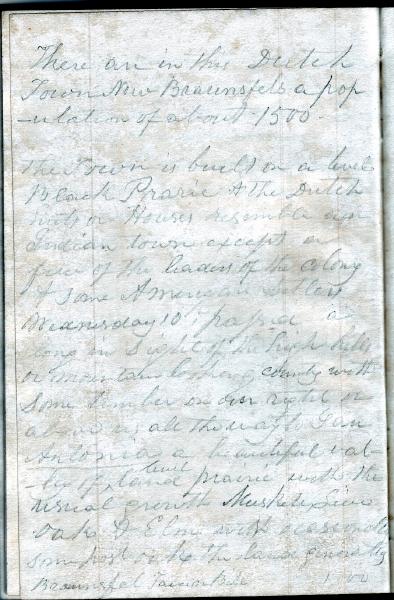 There are in this Dutch
Town New Braunsfels a pop
-ulation of about 1500
The Town is built on a level
Black Prarie & the Dutch
huts or Houses resemble an
Indian town except a
few of the leaders of the colony
& some American settlers
Wednesday 10th passed a
long in sight of the high hills
or mountain looking country with
some timber on our right or
above us all the way to San
Antonia a beautiful val-
-ley of level land prairie with the
usual growth Muskete Live
oak & Elm with occasionally
some post oak the land generally
Braunsfel Tavern Bill 1.00